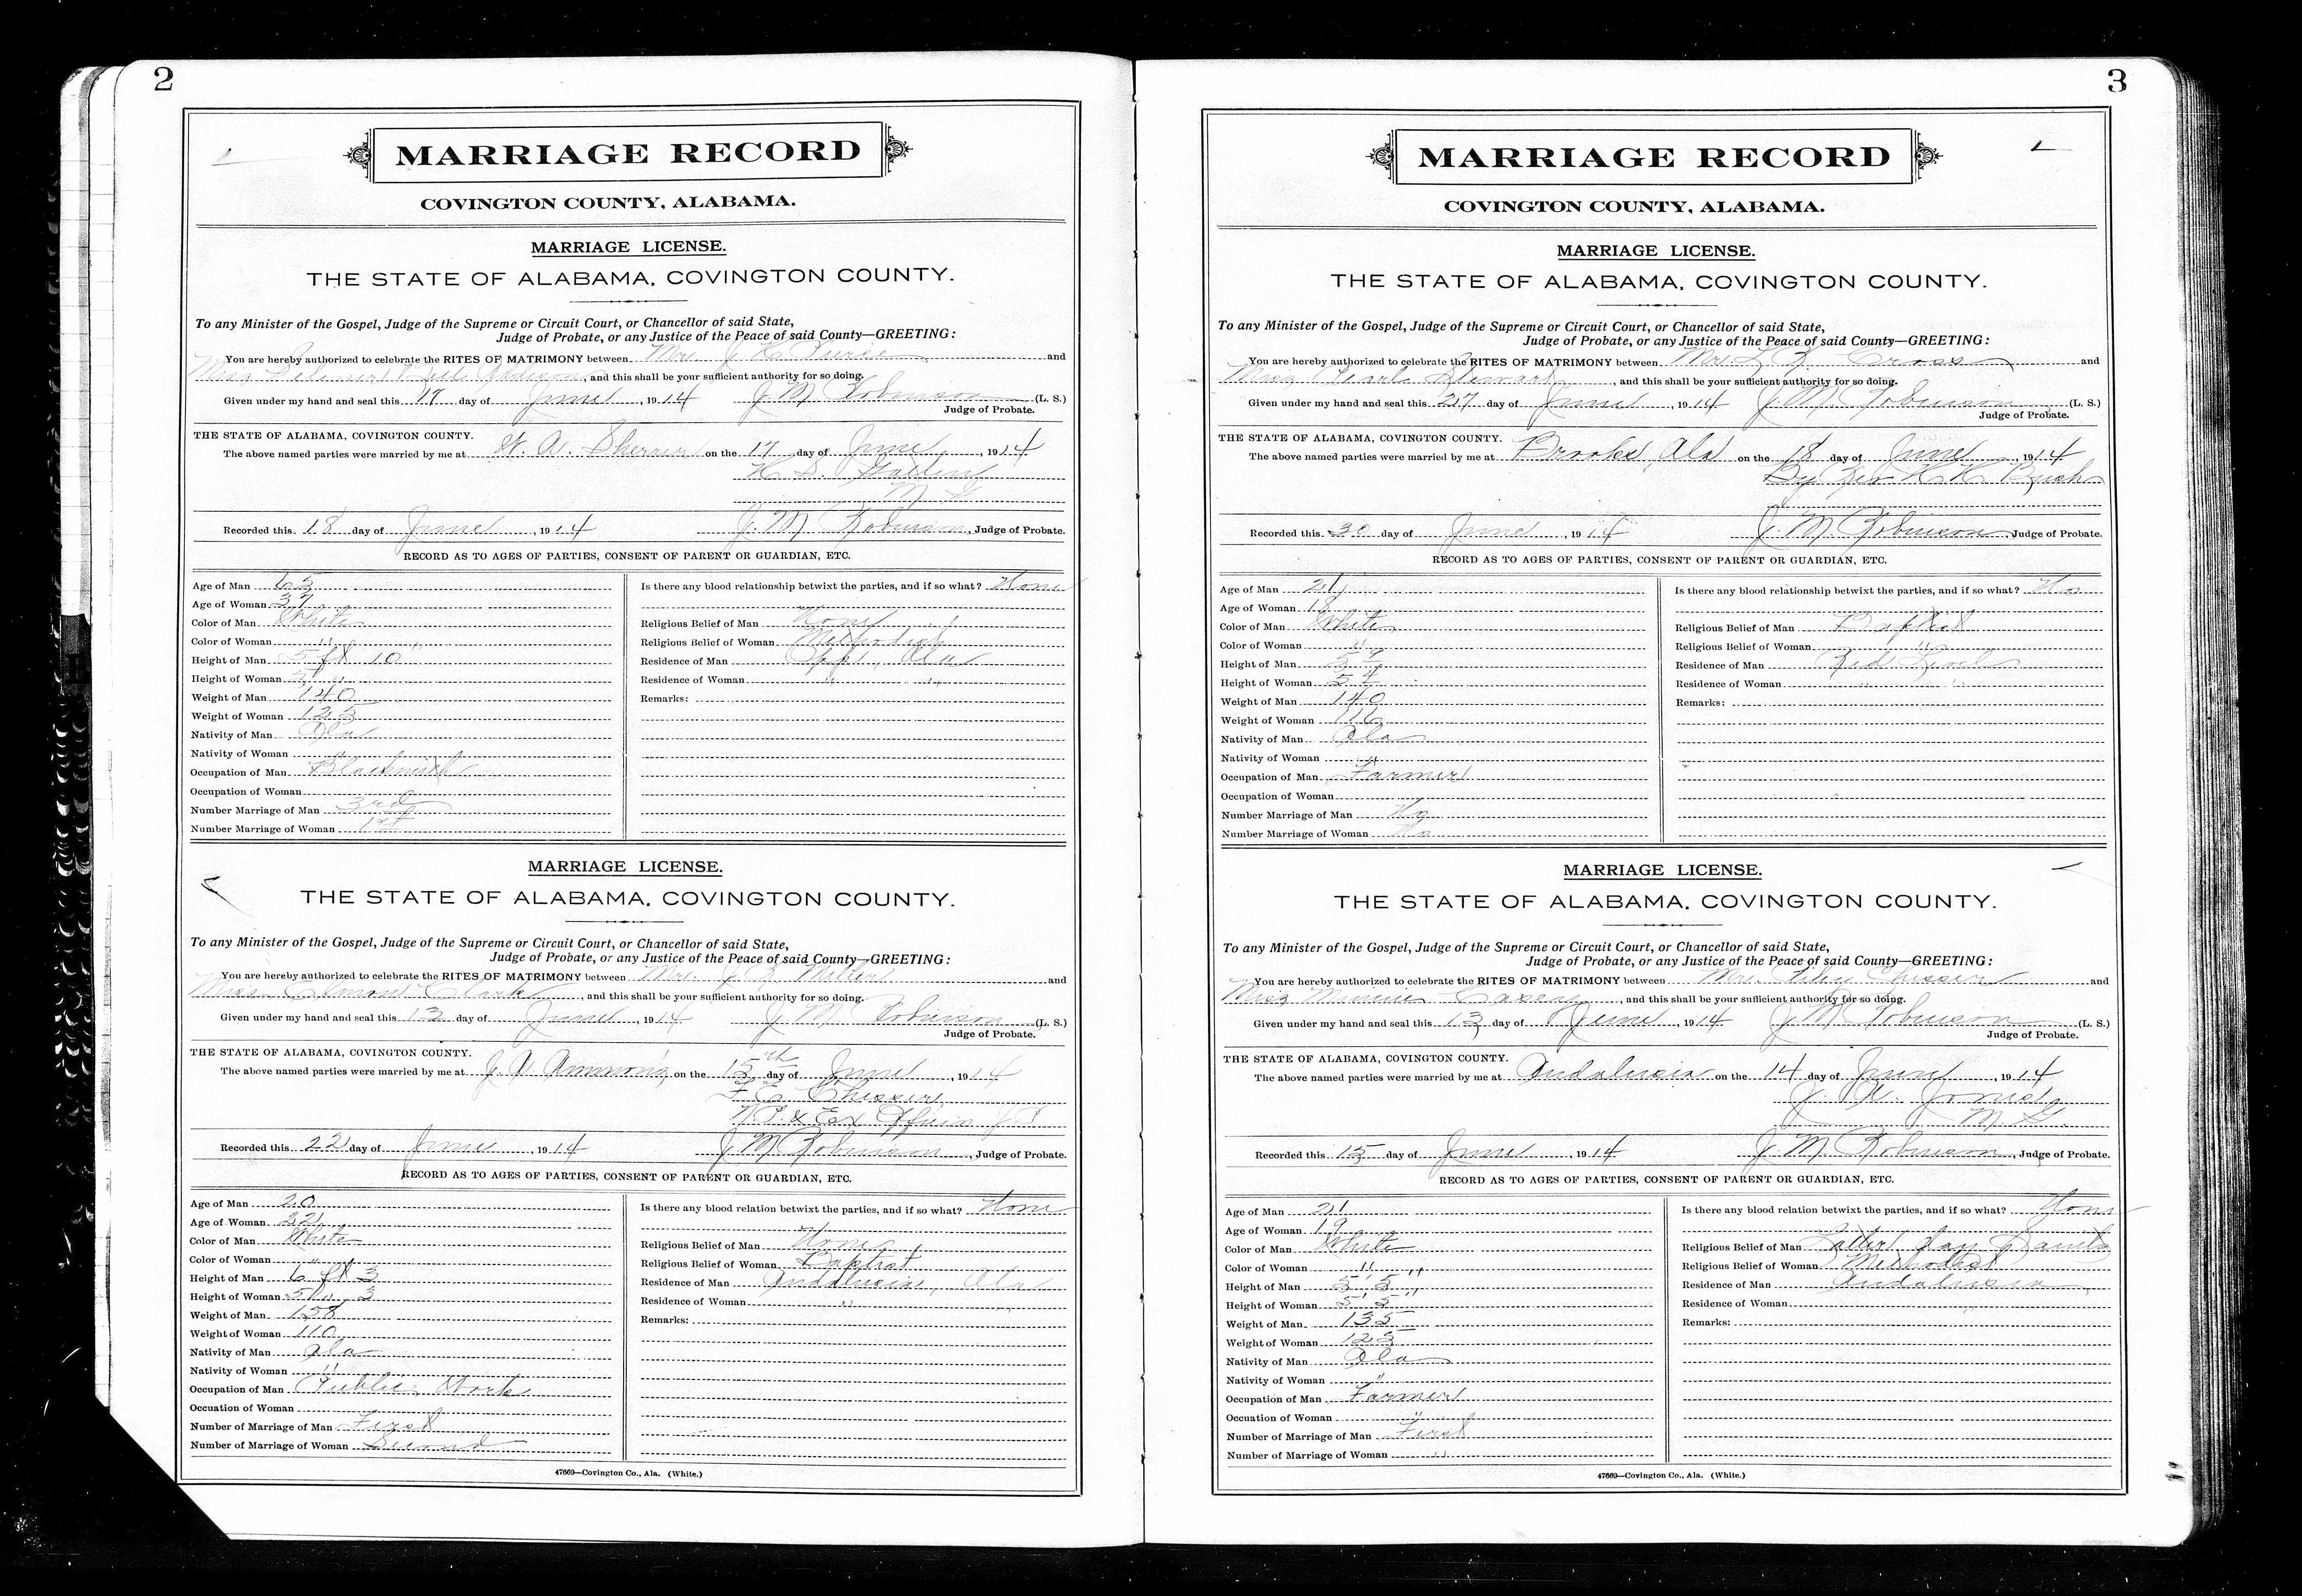 2
MARRIAGE RECORD
COVINGTON COUNTY, ALABAMA.
MARRIAGE LICENSE.
THE STATE OF ALABAMA, COVINGTON COUNTY.
To any Minister of the Gospel, Judge of the Supreme or Circuit Court, or Chancellor of said State,
Judge of Probate, or any Justice of the Peace of said County—GREETING:
You are hereby authorized to celebrate the RITES OF MATRIMONY between Mr. J. K. and
Miss, and this shall be your sufficient authority for so doing.
Given under my hand and seal this 17 day of June, 1914 J. M. Robinson (L. S.)
Judge of Probate.
THE STATE OF ALABAMA, COVINGTON COUNTY.
The above named parties were married by me at W. A. on the 17 day of June, 1914
M G
Recorded this 18 day of June, 1914 J. M. Robinson, Judge of Probate.
RECORD AS TO AGES OF PARTIES, CONSENT OF PARENT OR GUARDIAN, ETC.
Age of Man 63
Age of Woman 37
Color of Man White
Color of Woman "
Height of Man 5 ft 10"
Height of Woman
Weight of Man 140
Weight of Woman 125
Nativity of Man Ala
Nativity of Woman "
Occupation of Man Blacksmith
Occupation of Woman
Number Marriage of Man 3rd
Number Marriage of Woman 1st
Is there any blood relationship betwixt the parties, and if so what? None
Religious Belief of Man None
Religious Belief of Woman Methodist
Residence of Man Opp, Ala
Residence of Woman " "
Remarks:
MARRIAGE LICENSE.
THE STATE OF ALABAMA, COVINGTON COUNTY.
To any Minister of the Gospel, Judge of the Supreme or Circuit Court, or Chancellor of said State,
Judge of Probate, or any Justice of the Peace of said County—GREETING:
You are hereby authorized to celebrate the RITES OF MATRIMONY between Mr. Miller and
Miss Clark, and this shall be your sufficient authority for so doing.
Given under my hand and seal this 13 day of June, 1914 J M Robinson (L. S.)
Judge of Probate.
THE STATE OF ALABAMA, COVINGTON COUNTY.
The above named parties were married by me at J. A. Ammons, on the 15th day of June, 1914
Chesser,
N. P. & Ex Officio J P
Recorded this 22 day of June, 1914 J M Robinson, Judge of Probate.
RECORD AS TO AGES OF PARTIES, CONSENT OF PARENT OR GUARDIAN, ETC.
Age of Man 20
Age of Woman 22
Color of Man White
Color of Woman "
Height of Man 6 ft 3
Height of Woman 5 " 3
Weight of Man 158
Weight of Woman 110
Nativity of Man Ala
Nativity of Woman "
Occupation of Man Public Work
Occuation of Woman
Number of Marriage of Man First
Number of Marriage of Woman Second
Is there any blood relation betwixt the parties, and if so what? None
Religious Belief of Man None
Religious Belief of Woman Baptist
Residence of Man Andalusia, Ala
Residence of Woman "
Remarks:
47669—Covington Co., Ala. (White.)
3
MARRIAGE RECORD
COVINGTON COUNTY, ALABAMA.
MARRIAGE LICENSE.
THE STATE OF ALABAMA, COVINGTON COUNTY.
To any Minister of the Gospel, Judge of the Supreme or Circuit Court, or Chancellor of said State,
Judge of Probate, or any Justice of the Peace of said County—GREETING:
You are hereby authorized to celebrate the RITES OF MATRIMONY between Mr. Cross and
Miss Pearl Stewart, and this shall be your sufficient authority for so doing.
Given under my hand and seal this 27 day of June, 1914 J. M. Robinson (L. S.)
Judge of Probate.
THE STATE OF ALABAMA, COVINGTON COUNTY.
The above named parties were married by me at Brooks, Ala on the 18 day of June, 1914
By Rev K. K. Bush
Recorded this 30 day of June, 1914 J. M. Robinson, Judge of Probate.
RECORD AS TO AGES OF PARTIES, CONSENT OF PARENT OR GUARDIAN, ETC.
Age of Man 21
Age of Woman 18
Color of Man White
Color of Woman "
Height of Man
Height of Woman 5 4
Weight of Man 140
Weight of Woman 116
Nativity of Man Ala
Nativity of Woman "
Occupation of Man Farmer
Occupation of Woman
Number Marriage of Man No
Number Marriage of Woman No
Is there any blood relationship betwixt the parties, and if so what? No
Religious Belief of Man Baptist
Religious Belief of Woman "
Residence of Man Red Level
Residence of Woman " "
Remarks:
MARRIAGE LICENSE.
THE STATE OF ALABAMA, COVINGTON COUNTY.
To any Minister of the Gospel, Judge of the Supreme or Circuit Court, or Chancellor of said State,
Judge of Probate, or any Justice of the Peace of said County—GREETING:
You are hereby authorized to celebrate the RITES OF MATRIMONY between Mr. Chesser and
Miss Minnie Casey, and this shall be your sufficient authority for so doing.
Given under my hand and seal this 13 day of June, 1914 J. M. Robinson (L. S.)
Judge of Probate.
THE STATE OF ALABAMA, COVINGTON COUNTY.
The above named parties were married by me at Andalusia on the 14 day of June, 1914
J. A. Jones,
M. G.
Recorded this 15 day of June, 1914 J. M. Robinson, Judge of Probate.
RECORD AS TO AGES OF PARTIES, CONSENT OF PARENT OR GUARDIAN, ETC.
Age of Man 21
Age of Woman 19
Color of Man White
Color of Woman "
Height of Man 5' 5"
Height of Woman 5' 5"
Weight of Man 135
Weight of Woman 125
Nativity of Man Ala
Nativity of Woman "
Occupation of Man Farmer
Occuation of Woman "
Number of Marriage of Man First
Number of Marriage of Woman "
Is there any blood relation betwixt the parties, and if so what? None
Religious Belief of Man Latter day Saints
Religious Belief of Woman Methodist
Residence of Man Andalusia
Residence of Woman
Remarks:
47669—Covington Co., Ala. (White.)